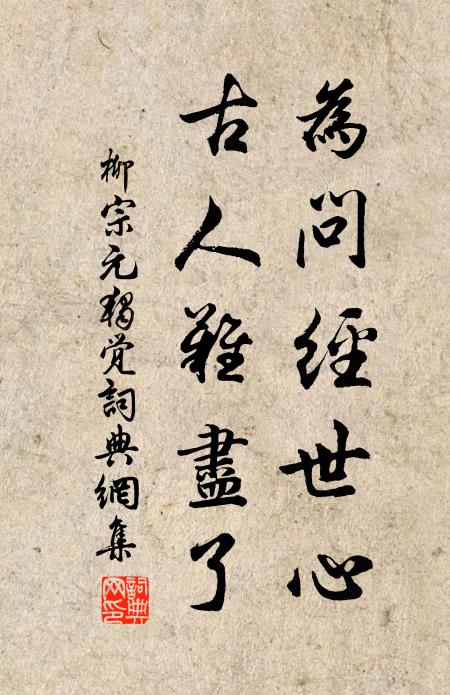 為問經世心
古人難盡了
柳宗元獨覚詞典網集
詞典